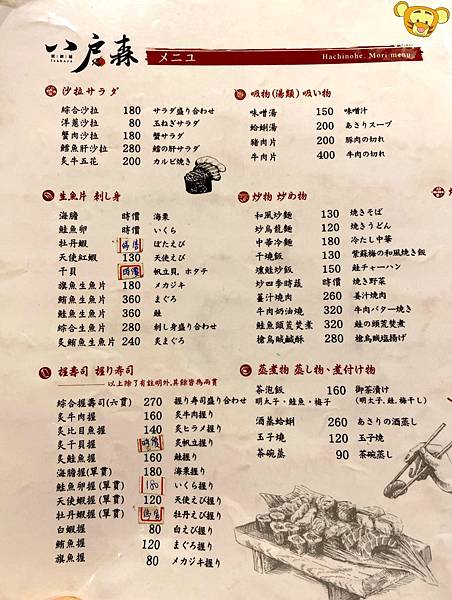 八戶森
メニュ
Hachinohe. Mori menu
沙拉サラダ
綜合沙拉 180 サラダ盛り合わせ
洋蔥沙拉 80 玉ねぎサラダ
蟹肉沙拉 180 蟹サラダ
鱈魚肝沙拉 280 鱈の肝サラダ
炙牛五花 200 カルビ焼き
生魚片 刺し身
海膽 時價 海栗
鮭魚卵 時價 いくら
牡丹蝦 時價 ぼたえび
天使紅蝦 130 天使えび
干貝 時價 帆立貝，ホタテ
旗魚生魚片 180 メカジキ
鮪魚生魚片 360 まぐろ
鮭魚生魚片 360 鮭
綜合生魚片 280 刺し身盛り合せ
炙鮪魚生魚片 240 炙まぐろ
握壽司 握り寿司
以上除了有註明外,其餘皆為兩貫
綜合握壽司(六貫) 270 握り寿司盛り合わせ
炙牛肉握 160 炙牛肉握り
炙比目魚握 140 炙ヒラメ握り
炙干貝握 時價 炙帆立握り
炙鮭魚握 160 鮭握り
海膽握(單貫) 180 海栗握り
鮭魚卵握(單貫) 180 いくら握り
天使蝦握(單貫) 120 天使えび握り
牡丹蝦握(單貫) 時價 牡丹えび握り
白蝦握 80 白えび握り
鮪魚握 120 まぐろ握り
旗魚握 80 メカジキ握り
吸物(湯類) 吸い物
味噌湯 150 味噌汁
蛤蜊湯 200 あさりスープ
豬肉片 200 豚肉の切れ
牛肉片 400 牛肉の切れ
炒物 炒め物
和風炒麵 130 焼きそば
炒烏龍麵 120 焼きうどん
中華冷麵 180 冷たし中華
干燒飯 130 紫蘇梅の和風焼き飯
爐鮭炒飯 150 鮭チャーハン
炒四季時蔬 時價 焼き野菜
薑汁燒肉 260 姜汁焼肉
牛肉奶油燒 320 牛肉バター焼き
鮭魚頭荒焚煮 320 鮭の頭荒焚煮
槍烏賊鹹酥 280 槍烏賊塩揚げ
蒸煮物 蒸し物、煮付け物
茶泡飯 160 御茶漬け
明太子・鮭魚・梅子 (明太子,鮭,梅干し)
酒蒸蛤蜊 260 あさりの酒蒸し
玉子燒 120 玉子焼
茶碗蒸 90 茶碗蒸し